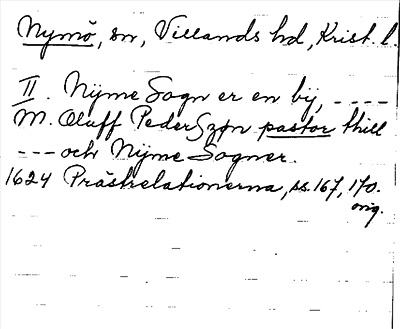 Nymö, sn, Villands hd, Krist. l.
II. Nÿme Sogn er en bÿ, ----
M. Oluff PederSzøn pastor thill
--- och Nÿme Sogner.
1624 Prästrelationerna, ss. 167, 170.
orig.